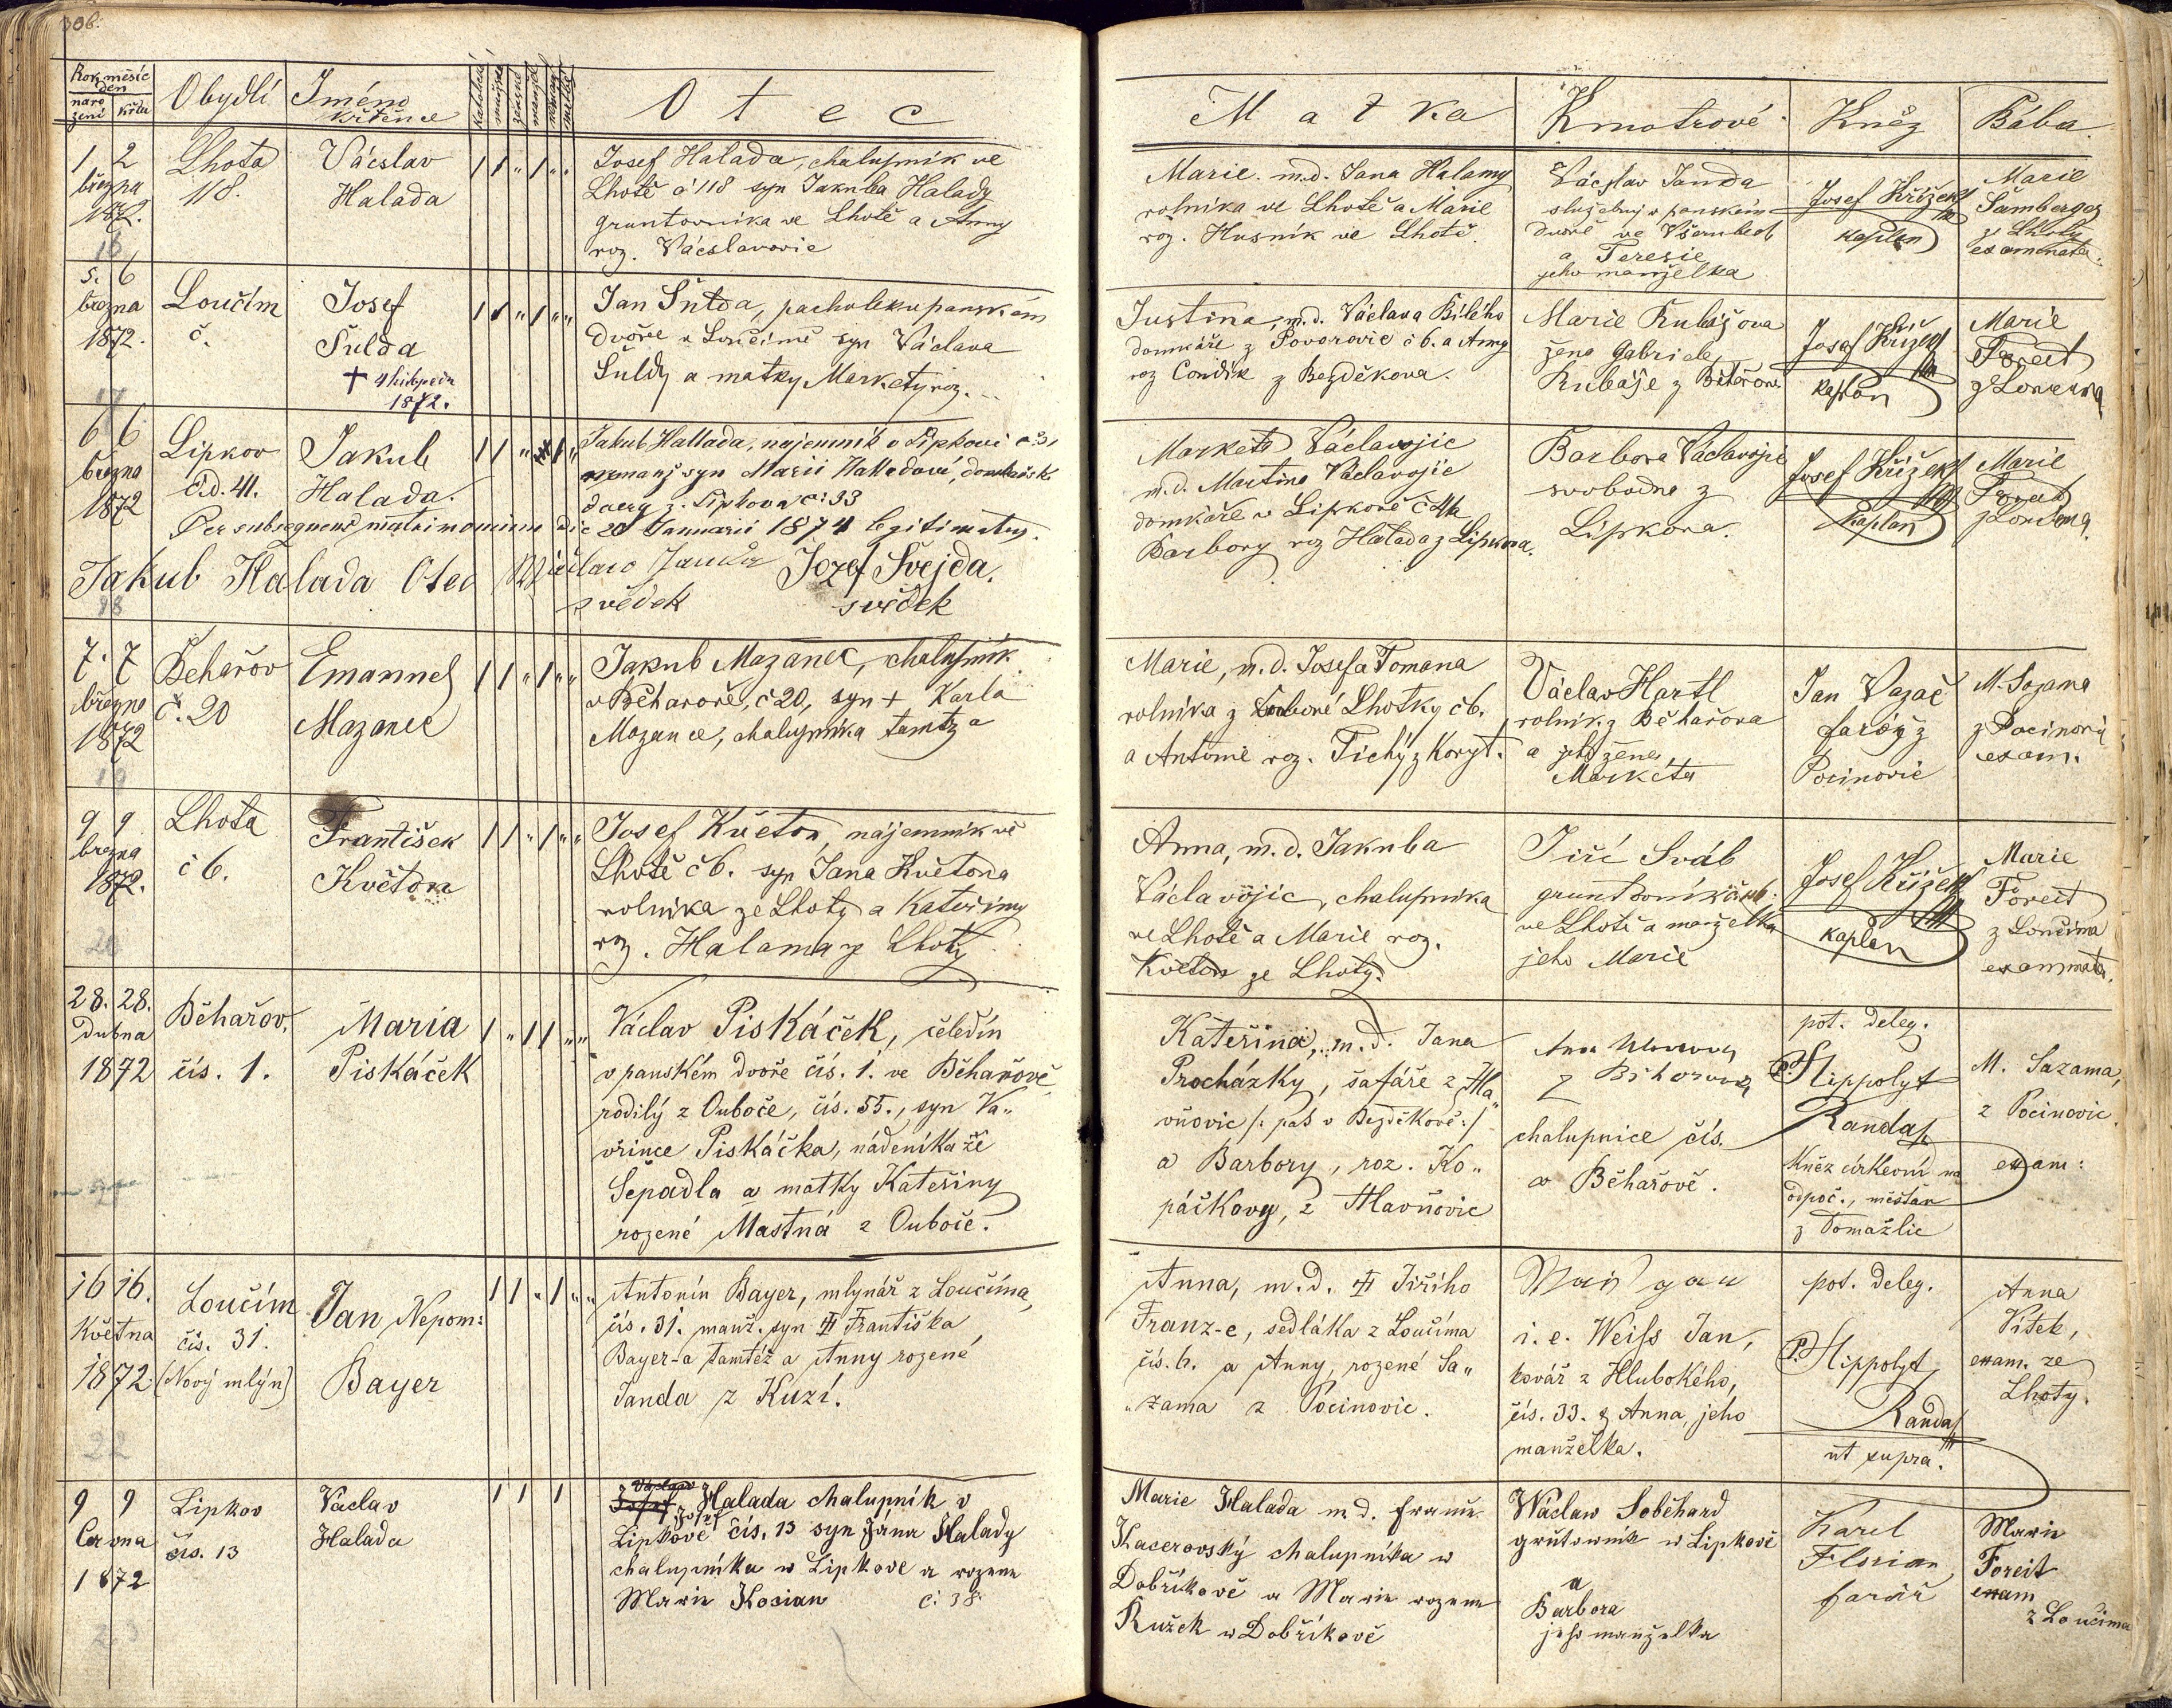 306.
Rok měsíc
den
naro
zení
křtu
Obydlí
Jméno
křtěnce
katolické
mužské
ženské
manžel
neman
O t e c
M a t k a
Kmotrové
Kněz
Bába.
1 2
března
1872.
16
Lhota
118.
Václav
Halada
Josef Halada, chalupník ve
Lhotě č 118 syn Jakuba Halady
gruntovníka ve Lhotě a Anny
roz. Václavovic
Marie m.d. Jana Halamy
rolníka ve Lhotě a Marie
roz. Husník ve Lhotě.
Václav Janda
služebný v panském
dvoře ve
a Teresie
jeho manželka
Josef Křížek
kaplan
Marie
Šamberger
z Lhoty
examinata.
5. 6
března
1872.
17
Loučím
č.
Josef
Šulda
+ 4
1872.
Jan Šulda, pacholek u panském
dvoře v Loučimě syn Václava
Šuldy a matky Markety roz. ...
Justina, m.d. Václava Bílého
domkáře z Povorovic č 6. a Anny
roz Condík z Bezděkova.
Marie Kubášova
žena Gabriele
Kubáše z Běhařova
Josef Křížek
kaplan
Marie
Foreit
z Loučima
6 6
března
1872
Lipkov
č.d. 41.
Jakub
Halada.
Jakub Hallada, nájemník v Lipkově č 31
nemanž syn Marii Halladové, domkářské
dcery z Lipkova č: 33
Per subsequens matrimonium die 20 Januarii 1874 legitimatus.
Jakub Halada Otec
Václav Janda
svědek
Jozef Švejda.
svědek
18
Marketa Václavojic
m.d. Martina Václavojic
domkáře v Lipkově č 41 a
Barbory roz Halada z Lipkova.
Barbora Václavojic
svobodna z
Lipkova.
Josef Křížek
kaplan
Marie
Foreit
z Loučima.
7. 7
března
1872
19
Behařov
č. 20
Emanuel
Mazanec
Jakub Mazanec, chalupník
v Běhařově, č 20, syn + Karla
Mazance, chalupníka tamtz a
Marie, m.d. Josefa Tomana
rolníka z Dubové Lhotky č 6.
a Antonie roz. Tichý z Koryt.
Václav Hartl
rolník z Běhařova
a jeho žena
Markéta
Jan Vazač
farář z
Pocinovic
M. Sazama
z Pocinovic
exam.
9 9
března
1872.
20
Lhota
č 6.
František
Květon
Josef Květon, nájemník ve
Lhotě č 6. syn Jana Květona
rolníka ze Lhoty a Kateřiny
roz. Halama z Lhoty
Anna, m.d. Jakuba
Václavojic, chalupníka
ve Lhotě a Marie roz.
Květon ze Lhoty.
Jiří Sváb
gruntovník
ve Lhotě a manželka
jeho Marie
Josef Křížek
kaplan
Marie
Foreit
z Loučima
examinata.
28. 28.
Dubna
1872
Běhařov.
čís. 1.
Maria
Piskáček
Václav Piskáček, čeledín
v panském dvoře čís. 1. ve Běhařově
rodilý z Ouboče, čís. 55., syn Va„
vřince Piskáčka, nádeníka ze
Sepadla a matky Kateřiny
rozené Mastná z Ouboče.
Kateřina, m.d. Jana
Procházky, šafáře z Ha„
vňovic /: pas v Bezděkově :/
a Barbory, roz. Ko„
páčkovy, z Havňovic
Anna
z Běhařova
chalupnice čís.
v Běhařově.
pot. deleg.
P. Hippolyt
Randa
Kněz církevní na
odpoč., měšťan
z Domažlic
M. Sazama,
z Pocinovic
exam:
16 16.
Května
1872.
22
Loučím
čís. 31.
(Nový mlýn)
Jan Nepom:
Bayer
Antonín Bayer, mlynář z Loučíma,
čís. 31. manž. syn # Františka
Bayer-a tamtéž a Anny rozené
Janda z Kuzí.
Anna, m.d. # Jiřího
Franz-e, sedláka z Loučíma
čís. 6. a Anny, rozené Sa„
„zama z Pocinovic.
i.e. Weiss Jan,
kovář z Hlubokého,
čís. 33. & Anna, jeho
manželka.
pot. deleg.
P. Hippolyt
Randa
ut supra.
Anna
Vítek,
exam. ze
Lhoty.
9 9
Června
1872
23
Lipkov
čís. 13
Václav
Halada
Václav
Josef Halada chalupník v
Josef
Lipkově čís. 13 syn Jána Halady
chalupníka w Lipkove a rozene
Marie Kosian č: 38
Marie Halada m d. Frant.
Kacerovský chalupníka w
Dobříkově a Marie rozene
Kužek w Dobříkově
Wáclaw Soběhard
grůtownik w Lipkově
a
Barbora
jeho manželka
Karel
Florian
farář
Marie
Foreit
exam
z Loučima